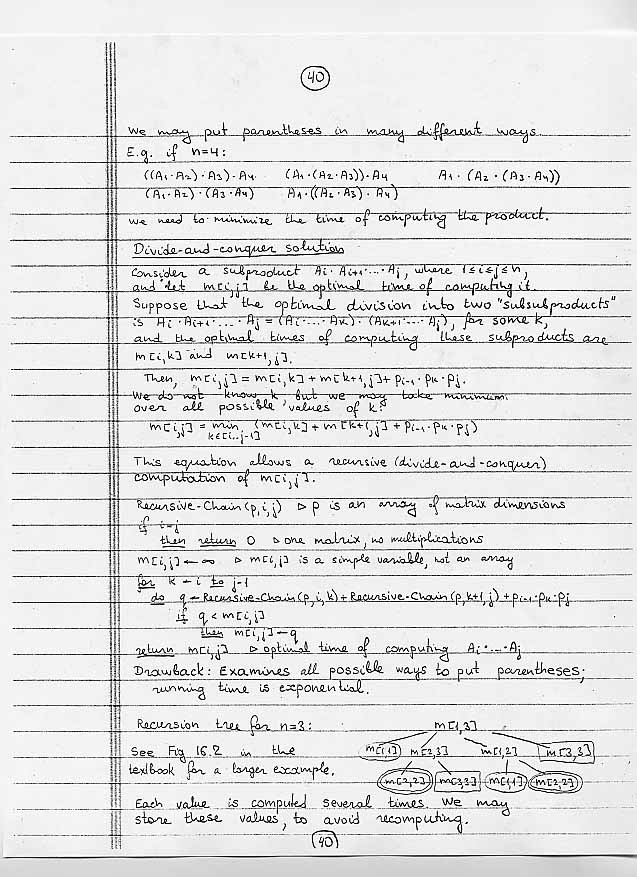 40
We may put parentheses in many different ways.
E.g. if n=4:
((A1·A2)·A3)·A4. (A1·(A2·A3))·A4 A1·(A2·(A3·A4))
(A1·A2)·(A3·A4) A1·((A2·A3)·A4)
We need to minimize the time of computing the product.
Divide-and-conquer solution
Consider a subproduct Ai·Ai+1·...·Aj, where 1≤i≤j≤n,
and let m[i,j] be the optimal time of computing it.
Suppose that the optimal division into two "subsubproducts"
is Ai·Ai+1·...·Aj = (Ai·...·Ak)·(Ak+1·...·Aj), for some k,
and the optimal times of computing these subproducts are
m[i,k] and m[k+1,j].
Then, m[i,j] = m[i,k] + m[k+1,j] + pi-1·pk·pj.
We do not know k, but we may take minimum
over all possible values of k:
m[i,j] = min k∈[i..j-1] (m[i,k] + m[k+1,j] + pi-1·pk·pj)
This equation allows a recursive (divide-and-conquer)
computation of m[i,j].
Recursive-Chain(p,i,j) ▷ p is an array of matrix dimensions
if i=j
then return 0 ▷ one matrix, no multiplications
m[i,j] ← ∞ ▷ m[i,j] is a simple variable, not an array
for k ← i to j-1
do q ← Recursive-Chain(p,i,k) + Recursive-Chain(p,k+1,j) + pi-1·pk·pj
if q < m[i,j]
then m[i,j] ← q
return m[i,j] ▷ optimal time of computing Ai·...·Aj
Drawback: Examines all possible ways to put parentheses;
running time is exponential.
Recursion tree for n=3: m[1,3]
See Fig 16.2 in the m[1,1] m[2,3] m[1,2] m[3,3]
textbook for a larger example. m[2,2] m[3,3] m[1,1] m[2,2]
Each value is computed several times. We may
store these values, to avoid recomputing.
40